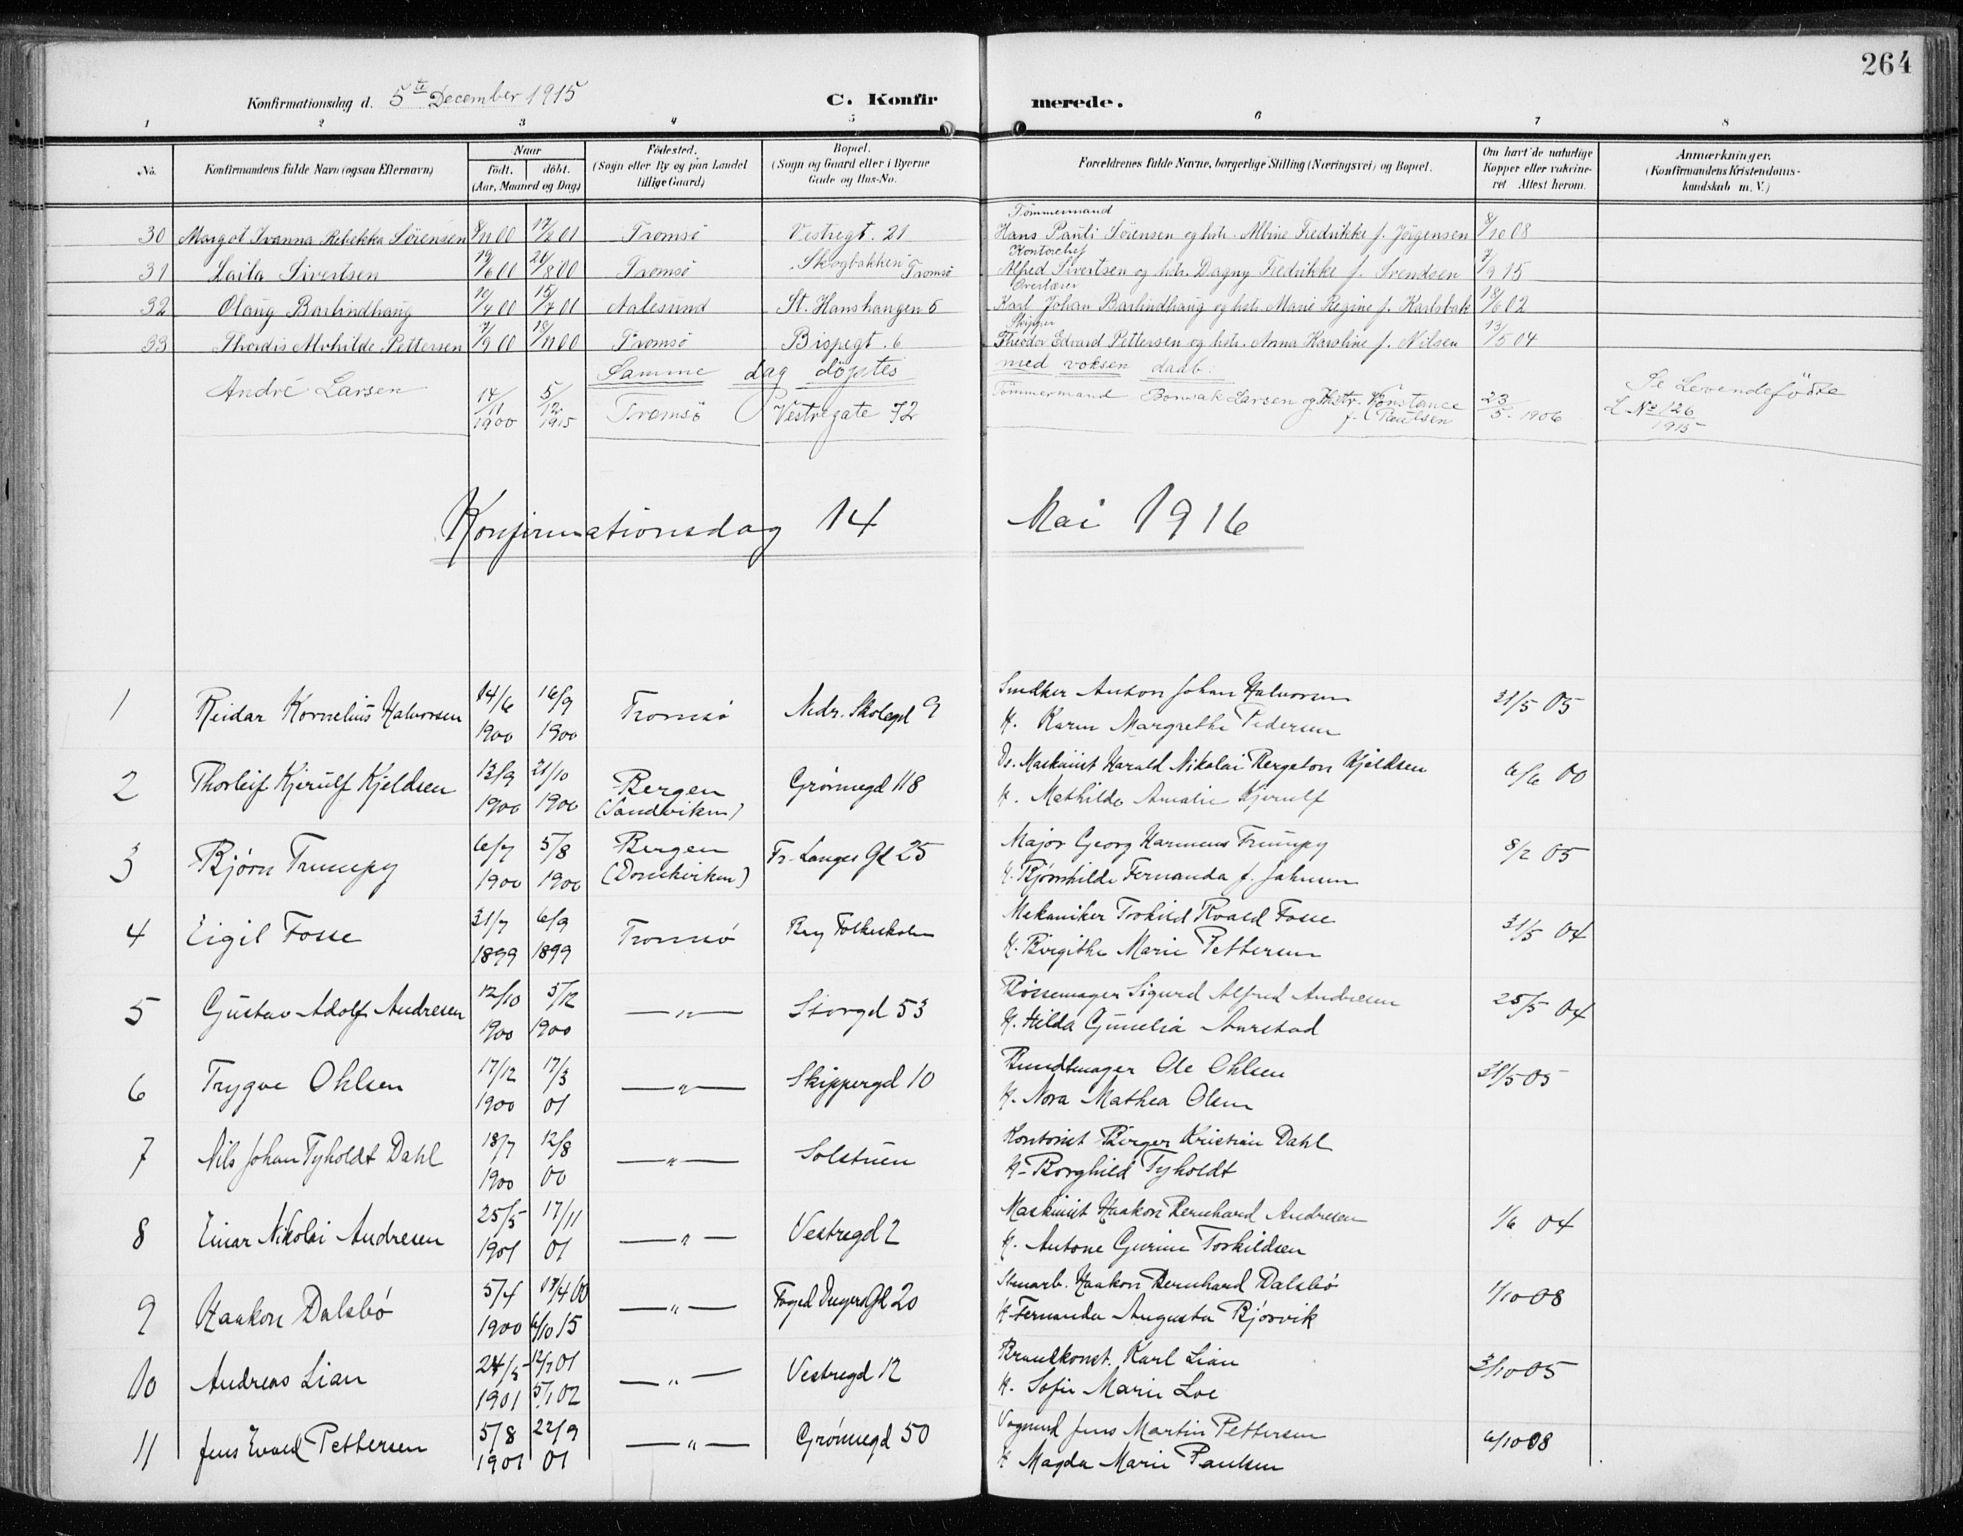 264
Konfirmationsdag d. 5te December 1915 C. Konfirmerede.
1 2 3 4 5 6 7 8
No. Konfirmandens fulde Navn (ogsaa Efternavn) Naar født. døbt. (Aar, Maaned og Dag) Fødested. (Sogn eller By og paa Landet tillige Gaard) Bopæl. (Sogn og Gaard eller i Byerne Gade og Hus-No. Forældrenes fulde Navne, borgerlige Stilling (Næringsvei) og Bopæl. Om havt de naturlige Kopper eller vaksineret Attest herom. Anmærkninger. (Konfirmandens Kristendomskundskab m. V.)
Tømmermand
30 Margot Ivanna Rebekka Sörensen 8/11 00 17/2 01 Tromsö Vestregt. 21 Hans Pauli Sörensen og hstr. Albine Fredrikke f. Jörgensen 8/10 08
Kontorchef
31 Laila Sivertsen 19/6 00 26/8 00 Tromsö Skogbakken Tromsö Alfred Sivertsen og hstr. Dagny Fredrikke f. Svendsen 7/9 15
Overlærer
32 Olaug Barlindhaug 10/4 00 15/7 01 Aalesund St. Hanshaugen 5 Karl Johan Barlindhaug og hstr. Marie Regine f. Karlsbak 18/6 02
Skipper
33 Thordis Mathilde Pettersen 7/9 00 18/11 00 Tromsö Bispegt. 6 Theodor Edvard Pettersen og hstr. Anna Karoline f. Nilsen 13/5 04
Samme dag döptes med voksen daab:
André Larsen 14/11 1900 5/12 1915 Tromsö Vestregate 72 Tømmermand Larsen og Hstr. Konstance f. Paulsen 23/5. 1906 Se Levendefödte L No 126 1915
Konfirmationsdag 14 Mai 1916
1 Reidar Kornelius Halvorsen 14/6 1900 16/9 1900 Tromsø Nedr. Skolegd 9 Snedker Anton Johan Halvorsen 31/5 05
H. Karen Margrethe Pedersen
2 Thorleif Kjerulf Kjeldsen 13/9 1900 21/10 1900 Bergen (Sandviken) Grønnegd 118 Maskinist Harald Nikolai Kjeldsen 6/6 00
H. Mathilde Amalie Kjerulf
3 Bjørn Trumpy 6/7 1900 5/8 1900 Bergen (Domkirken) Fr. Langes Gd 25 Major Georg Harmens Trumpy 8/2 05
H. Bjørnhilde Fernanda f. Jahnsen
4 Eigil Fosse 31/7 1899 6/9 1899 Tromsø Bay Folkeskolen Mekaniker Torkild Roald Fosse 31/5 04
H. Birgithe Marie Pettersen
5 Gustav Adolf Andresen 12/10 1900 5/12 1900 — " — Storgd 53 Bøssemager Sigurd Alfred Andresen 25/5 04
H. Hilda Gunelia Aurstad
6 Trygve Ohlsen 17/12 1900 17/3 01 — " — Skippergd 10 Bundtmager Ole Ohlsen 31/5 05
H. Nora Mathea Olsen
7 Nils Johan Tyholdt Dahl 18/7 1900 12/8 00 — " — Solstuen Kontorist Birger Kristian Dahl
H. Borghild Tyholdt
8 Einar Nikolai Andresen 25/5 1901 17/11 01 — " — Vestregd 2 Maskinist Haakon Bernhard Andresen 1/6 04
H. Antone Gurine Torkildsen
9 Haakon Dalsbø 5/4 1900 18/4 00 6/10 15 — " — Foged Dreyers Gd 20 Stenarb. Haakon Bernhard Dalsbø 1/10 08
H Fernanda Augusta Bjørvik
10 Andreas Lian 24/5 1901 12/7 01 5/1 02 — " — Vestregd 12 Brandkonst. Karl Lian 3/10 05
H. Sofie Marie Loe
11 Jens Evald Pettersen 5/8 1901 22/9 01 — " — Grønnegd 50 Vognmd Jens Martin Pettersen 6/10 08
H Magda Marie Paulsen